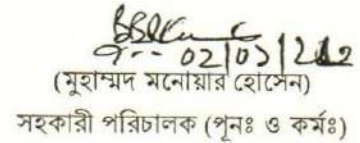 (মুহাম্মদ মনোয়ার হোসেন)
সহকারী পরিচালক (পূনঃ ও কর্মঃ)